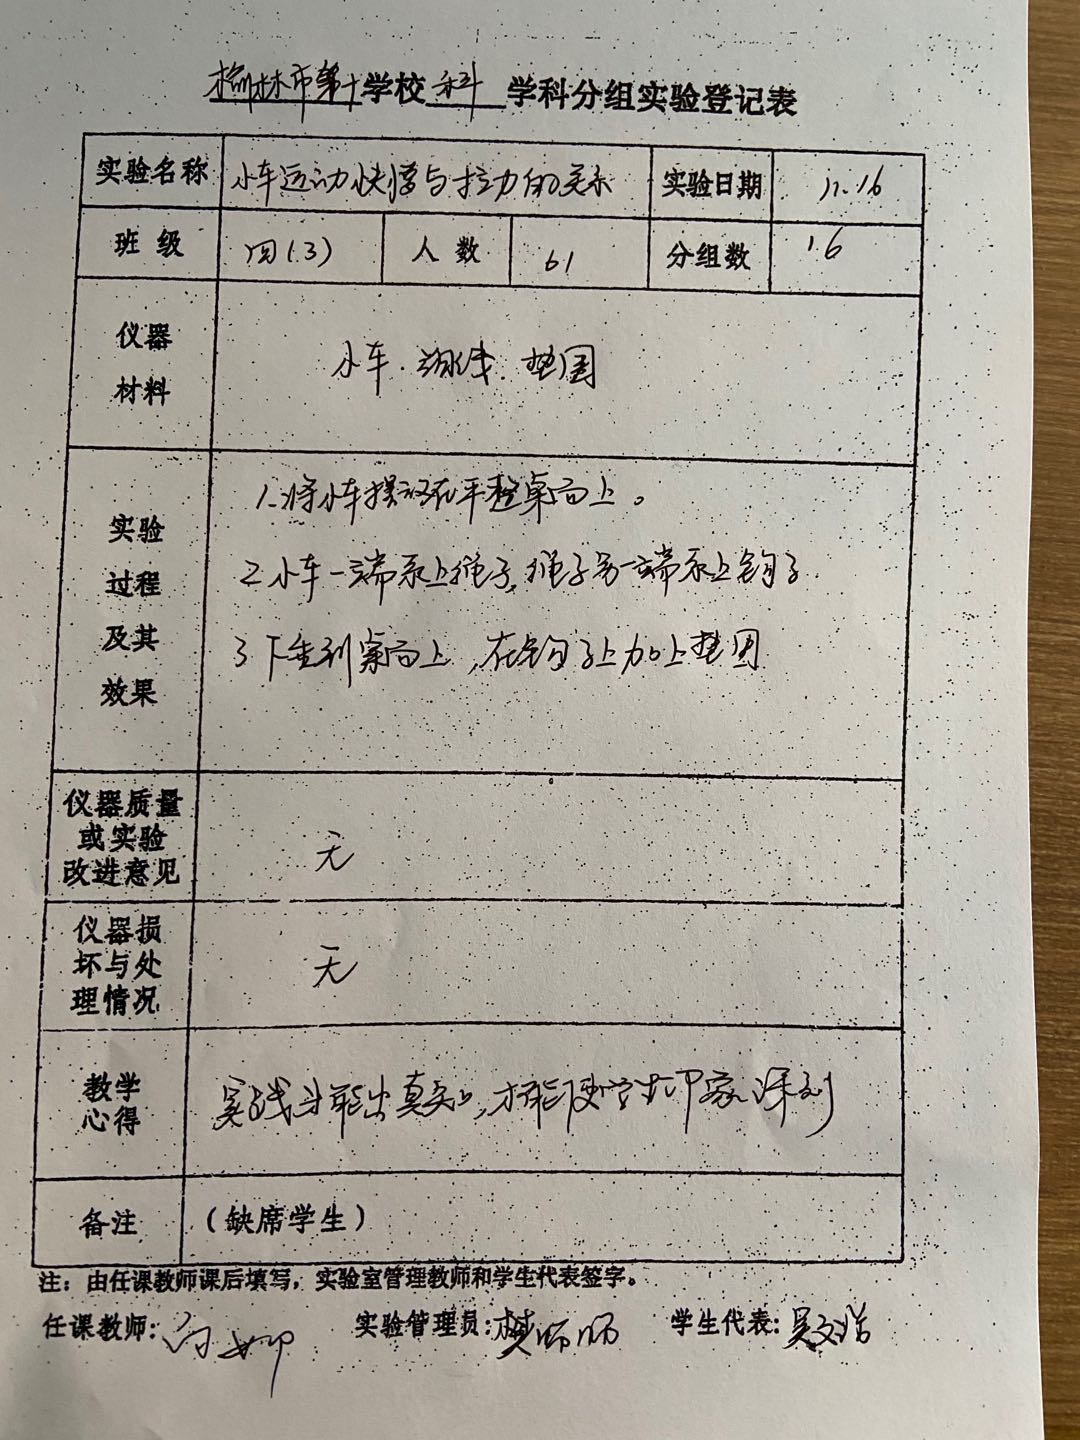 榆林市第十学校 科 学科分组实验登记表
实验名称 小车运动快慢与拉力的关系 实验日期 11.16
班级 四(3) 人数 61 分组数 16
仪器材料 小车. 绳线. 垫圈
实验过程及其效果
1.将小车摆放在平整桌面上。
2 小车一端系上绳子,绳子另一端系上钩子
3 下垂到桌面上,在钩子上加上垫圈
仪器质量或实验改进意见 无
仪器损坏与处理情况 无
教学心得 实践才能出真知,才能使学生印象深刻
备注 (缺席学生)
注:由任课教师课后填写,实验室管理教师和学生代表签字。
任课教师: 实验管理员: 学生代表: